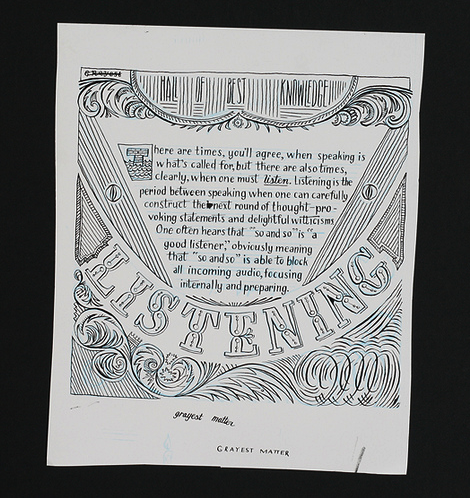 Grayest
HALL OF BEST KNOWLEDGE
There are times, you'll agree, when speaking is
what's called for, but there are also times,
clearly, when one must listen. Listening is the
period between speaking when one can carefully
construct the next round of thought-pro-
voking statements and delightful witticisms.
One often hears that "so and so" is "a
good listener," obviously meaning
that "so and so" is able to block
all incoming audio, focusing
internally and preparing.
LISTENING
grayest matter
GRAYEST MATTER